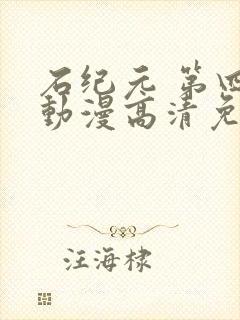 石纪元 第四
動漫高清免
汪海棣